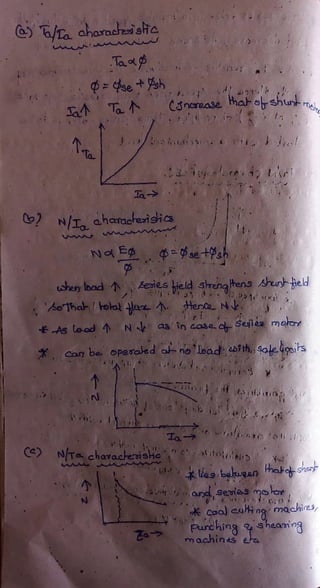 (a) Ta/Ia characteristic
Ta ∝ φ
φ = φse + φsh
Ia↑ Ta ↑ (Increase that of shunt
↑Ta
Ia→
(b) N/Ia characteristics
N ∝ Eφ/φ φ = φse + φsh
when load ↑, series field strengthens shunt field
so that total flux ↑. Hence N↓
* As load ↑ N↓ as in case of series motor
* can be operated at no load with safe limits
↑
N
Ia→
(c) N/Ta characteristic
* lies between that of shunt
and series motor
↑
N
* coal cutting machines,
Ta→
punching & shearing
machines etc